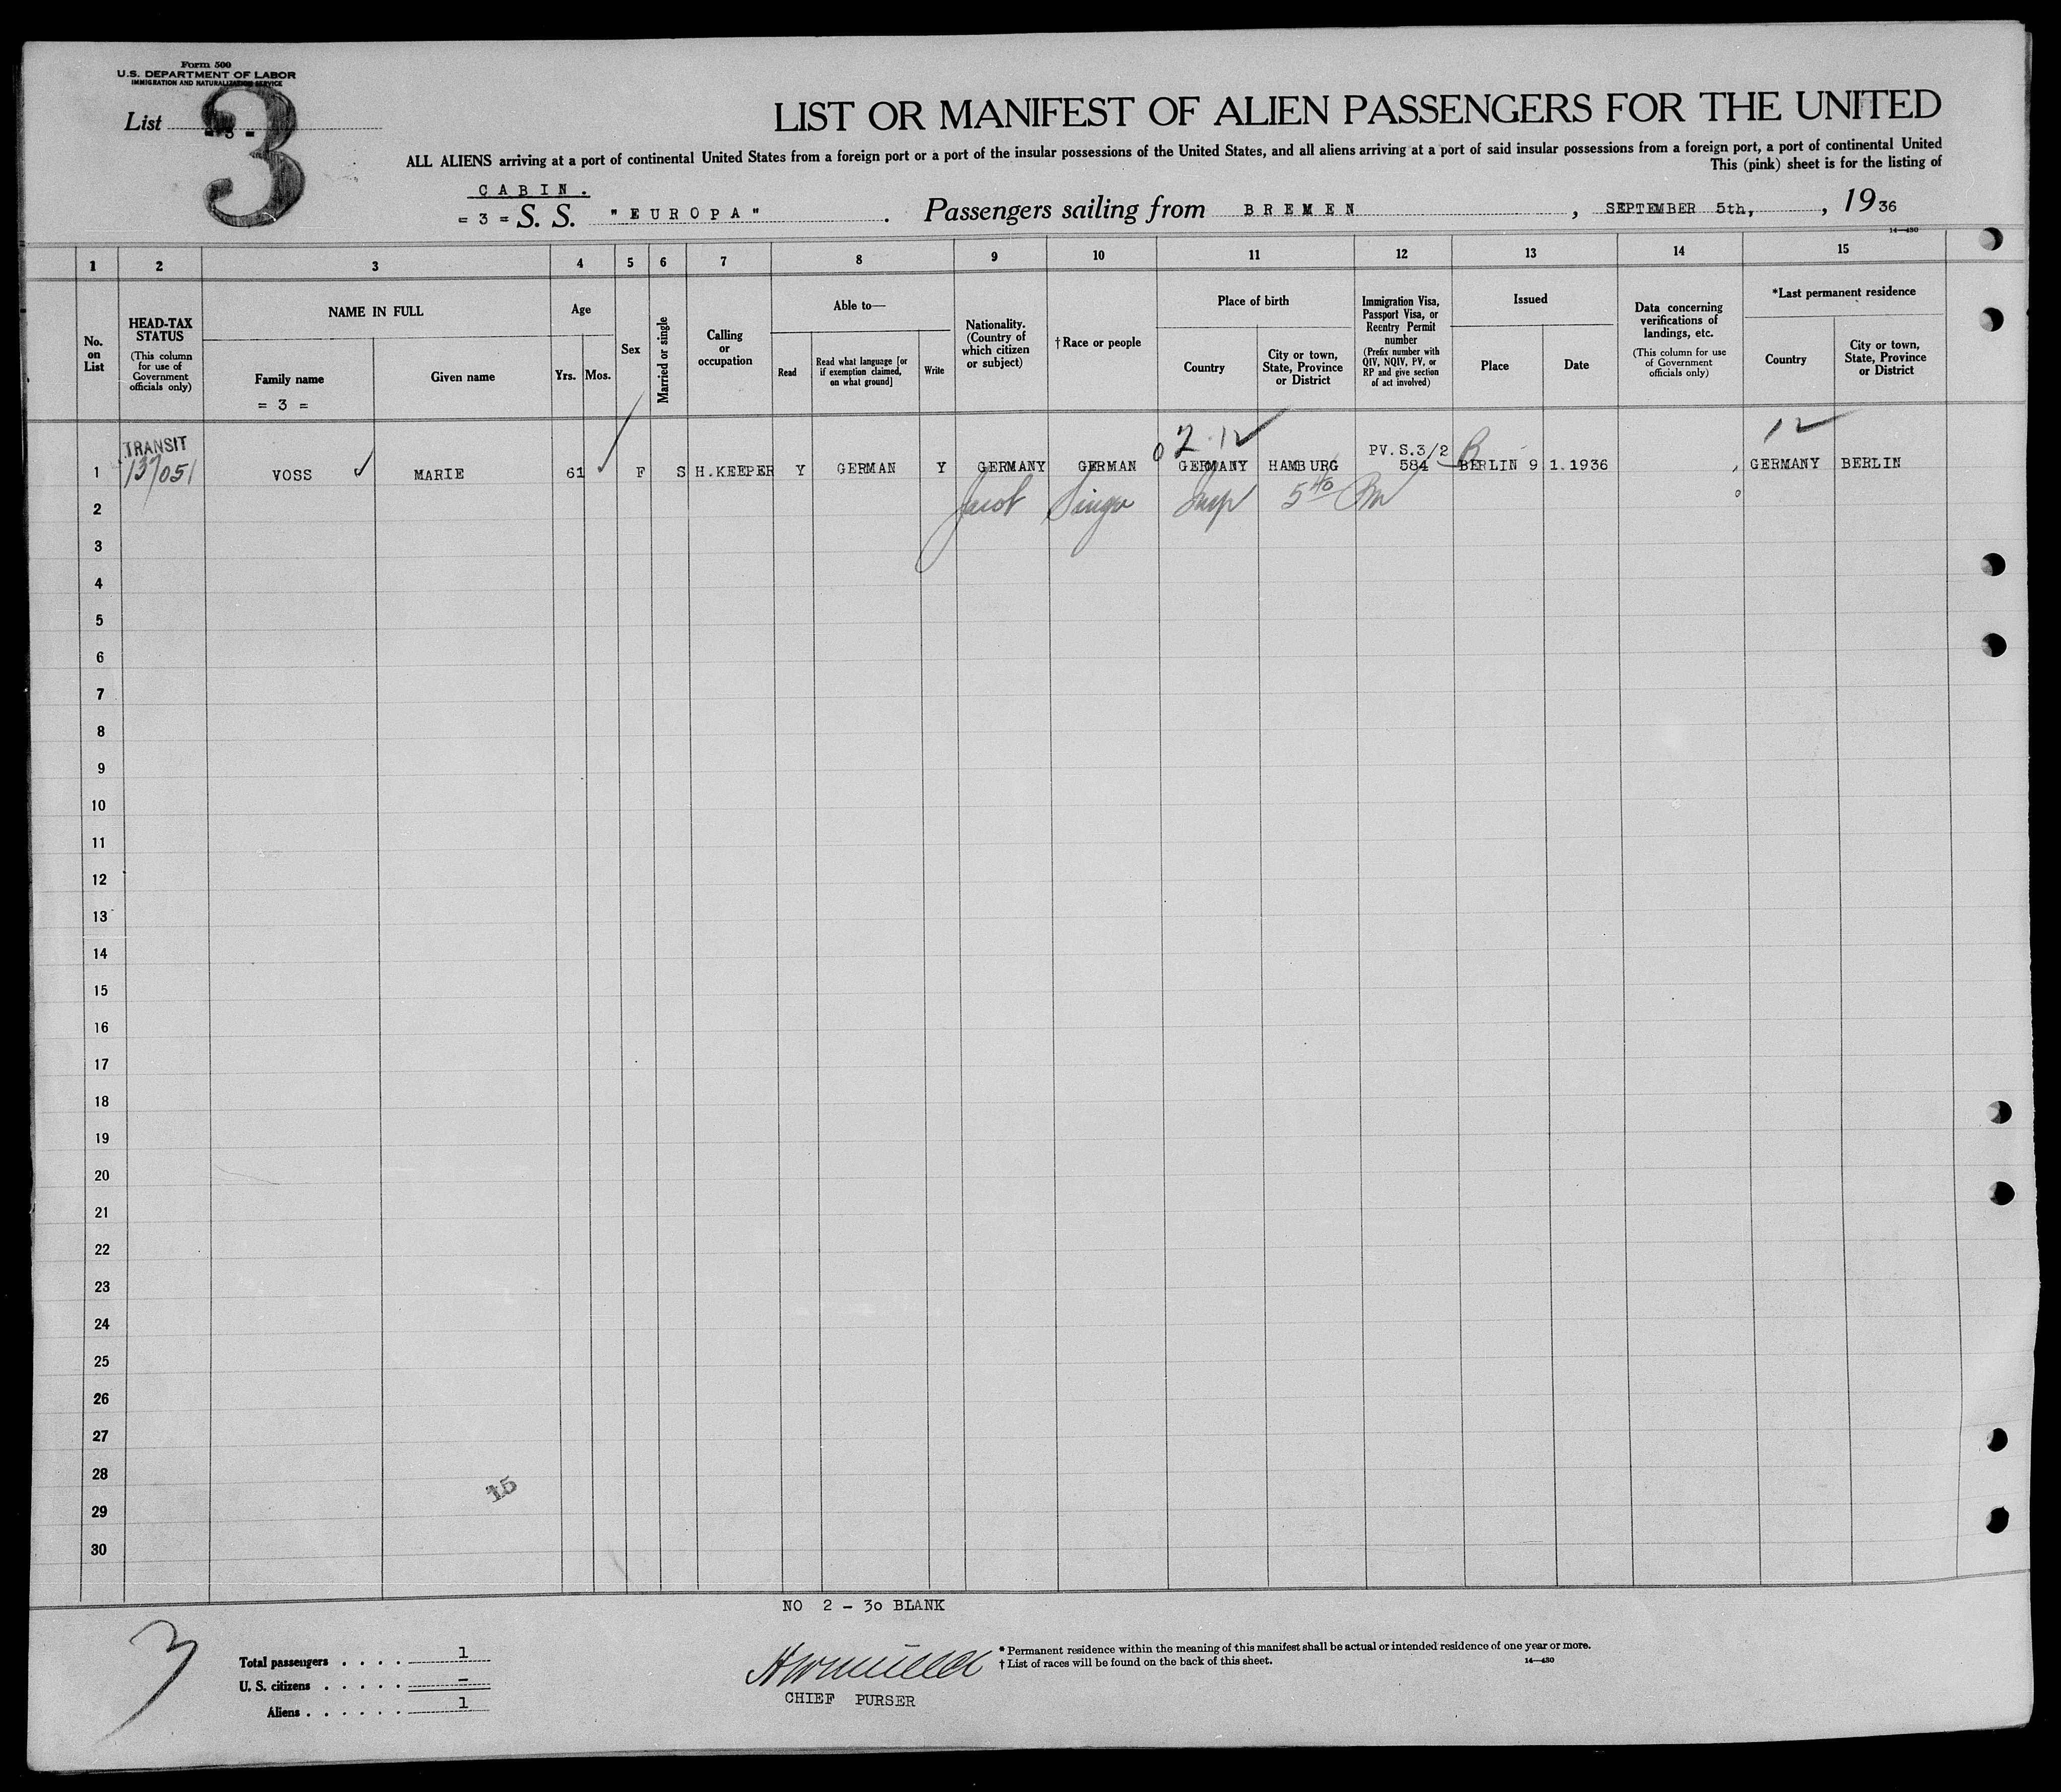 Form 500
U.S. DEPARTMENT OF LABOR
IMMIGRATION AND NATURALIZATION SERVICE
List - 3 -
3
LIST OR MANIFEST OF ALIEN PASSENGERS FOR THE UNITED
ALL ALIENS arriving at a port of continental United States from a foreign port or a port of the insular possessions of the United States, and all aliens arriving at a port of said insular possessions from a foreign port, a port of continental United
This (pink) sheet is for the listing of
CABIN.
= 3 = S. S. "EUROPA" . Passengers sailing from BREMEN , SEPTEMBER 5th, , 1936
14—430
1 2 3 4 5 6 7 8 9 10 11 12 13 14 15
No. on List
HEAD-TAX STATUS
(This column for use of Government officials only)
NAME IN FULL
Family name
= 3 =
Given name
Age
Yrs. Mos.
Sex
Married or single
Calling or occupation
Able to—
Read
Read what language [or if exemption claimed, on what ground]
Write
Nationality. (Country of which citizen or subject)
†Race or people
Place of birth
Country
City or town, State, Province or District
Immigration Visa, Passport Visa, or Reentry Permit number
(Prefix number with QIV, NQIV, PV, or RP and give section of act involved)
Issued
Place
Date
Data concerning verifications of landings, etc.
(This column for use of Government officials only)
*Last permanent residence
Country
City or town, State, Province or District
TRANSIT
137/051
PV.S.3/2
1 VOSS MARIE 61 F S H.KEEPER Y GERMAN Y GERMANY GERMAN GERMANY HAMBURG 584 BERLIN 9.1.1936 GERMANY BERLIN
2 Jacob Singer Insp 5 40 Pm
3
4
5
6
7
8
9
10
11
12
13
14
15
16
17
18
19
20
21
22
23
24
25
26
27
28
29
30
15
NO 2 - 30 BLANK
3
Total passengers . . . . 1
U. S. citizens . . . . . -
Aliens . . . . . . 1
CHIEF PURSER
* Permanent residence within the meaning of this manifest shall be actual or intended residence of one year or more.
† List of races will be found on the back of this sheet.
14—430